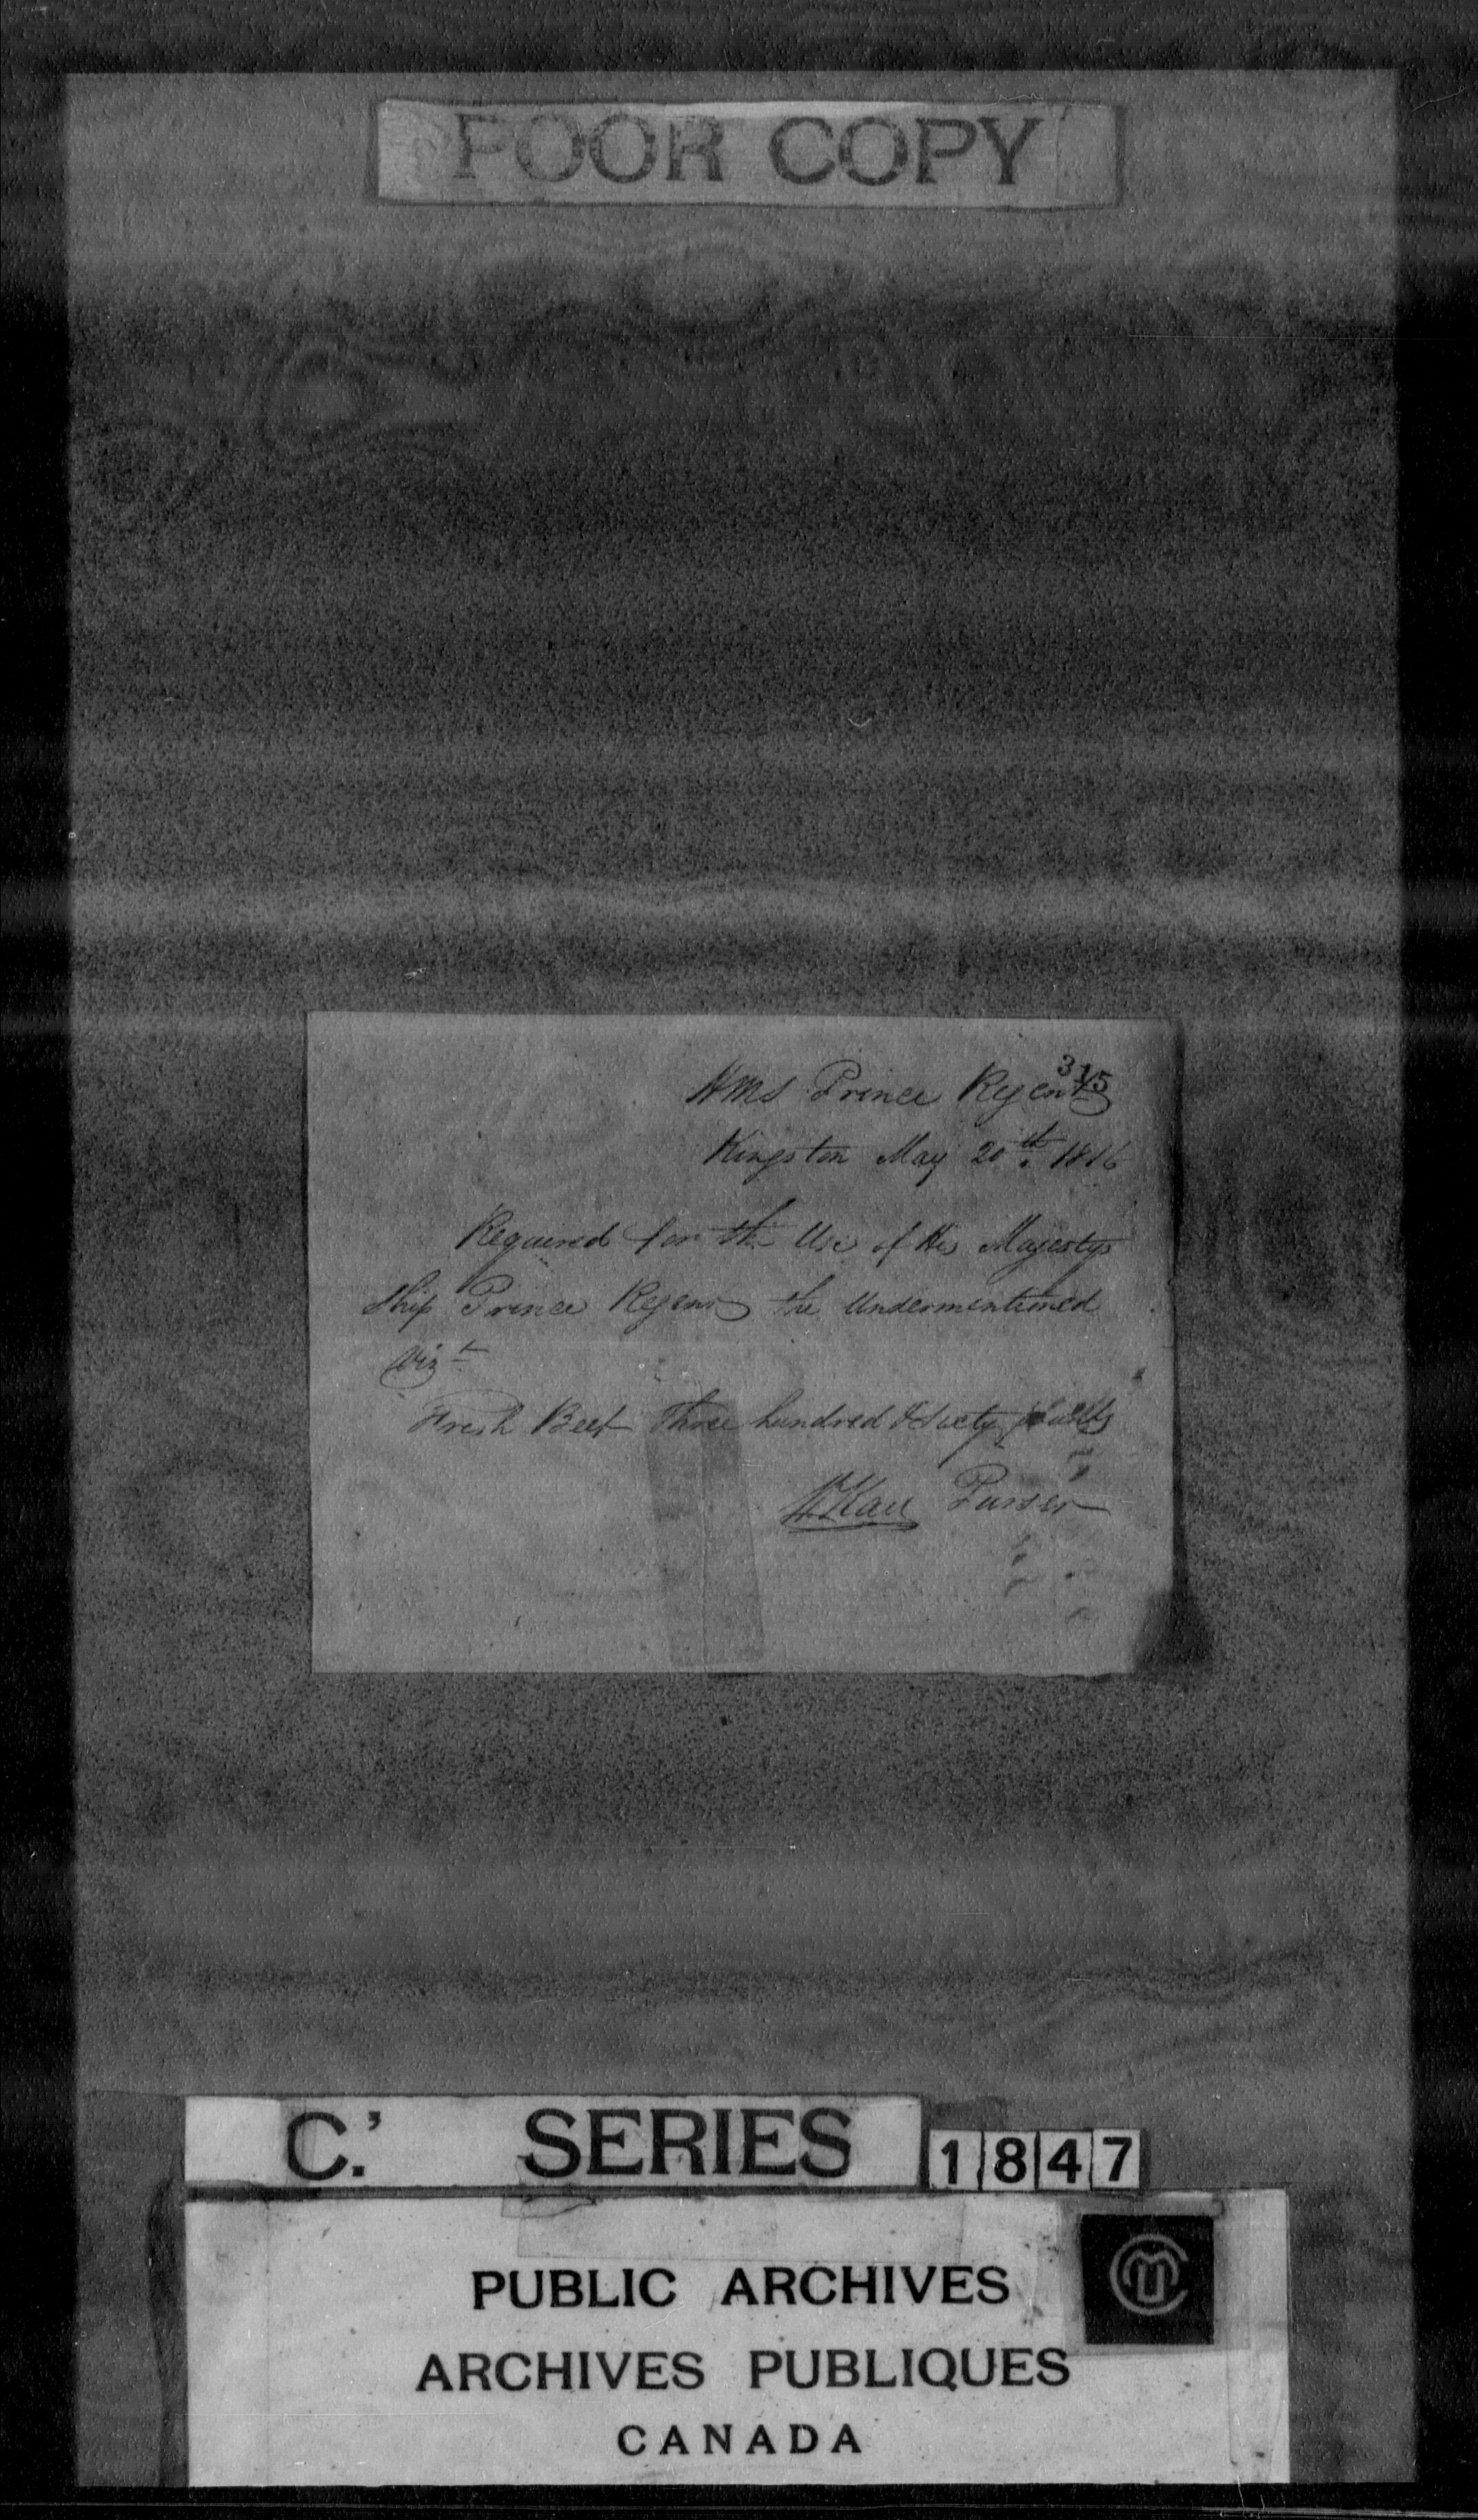 POOR COPY
315
HMS Prince Regent
Kingston May 20th. 1816
Required for the Use of His Majestys
Ship Prince Regent the Undermentioned
Vizt
Fresh Beef Three hundred & Sixty
Purser
C.' SERIES 1847
PUBLIC ARCHIVES
ARCHIVES PUBLIQUES
CANADA